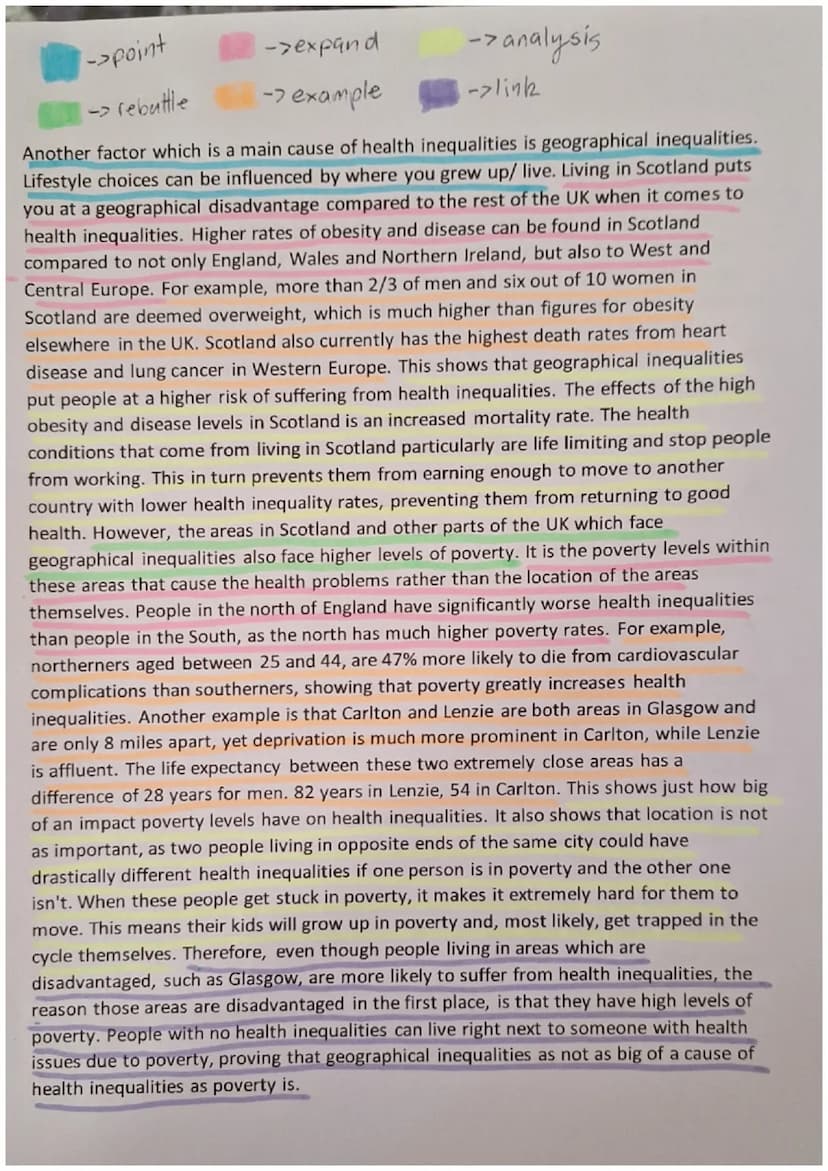 ->point ->expand ->analysis
->rebuttle ->example ->link
Another factor which is a main cause of health inequalities is geographical inequalities.
Lifestyle choices can be influenced by where you grew up/ live. Living in Scotland puts
you at a geographical disadvantage compared to the rest of the UK when it comes to
health inequalities. Higher rates of obesity and disease can be found in Scotland
compared to not only England, Wales and Northern Ireland, but also to West and
Central Europe. For example, more than 2/3 of men and six out of 10 women in
Scotland are deemed overweight, which is much higher than figures for obesity
elsewhere in the UK. Scotland also currently has the highest death rates from heart
disease and lung cancer in Western Europe. This shows that geographical inequalities
put people at a higher risk of suffering from health inequalities. The effects of the high
obesity and disease levels in Scotland is an increased mortality rate. The health
conditions that come from living in Scotland particularly are life limiting and stop people
from working. This in turn prevents them from earning enough to move to another
country with lower health inequality rates, preventing them from returning to good
health. However, the areas in Scotland and other parts of the UK which face
geographical inequalities also face higher levels of poverty. It is the poverty levels within
these areas that cause the health problems rather than the location of the areas
themselves. People in the north of England have significantly worse health inequalities
than people in the South, as the north has much higher poverty rates. For example,
northerners aged between 25 and 44, are 47% more likely to die from cardiovascular
complications than southerners, showing that poverty greatly increases health
inequalities. Another example is that Carlton and Lenzie are both areas in Glasgow and
are only 8 miles apart, yet deprivation is much more prominent in Carlton, while Lenzie
is affluent. The life expectancy between these two extremely close areas has a
difference of 28 years for men. 82 years in Lenzie, 54 in Carlton. This shows just how big
of an impact poverty levels have on health inequalities. It also shows that location is not
as important, as two people living in opposite ends of the same city could have
drastically different health inequalities if one person is in poverty and the other one
isn't. When these people get stuck in poverty, it makes it extremely hard for them to
move. This means their kids will grow up in poverty and, most likely, get trapped in the
cycle themselves. Therefore, even though people living in areas which are
disadvantaged, such as Glasgow, are more likely to suffer from health inequalities, the
reason those areas are disadvantaged in the first place, is that they have high levels of
poverty. People with no health inequalities can live right next to someone with health
issues due to poverty, proving that geographical inequalities as not as big of a cause of
health inequalities as poverty is.